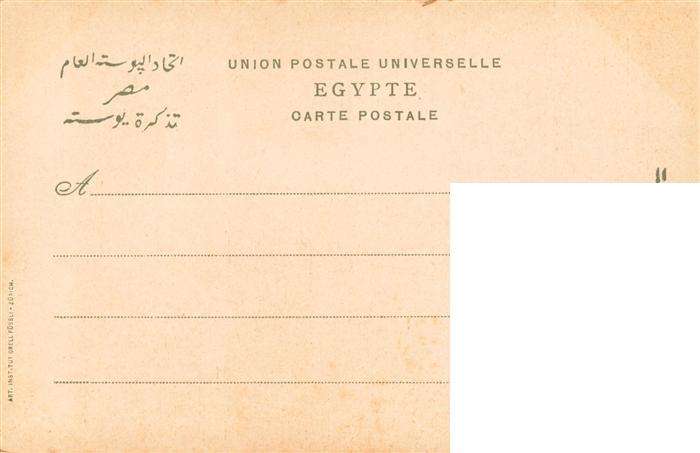 اتحاد الپوسته العام
مصر
تذكرة پوسته
UNION POSTALE UNIVERSELLE
EGYPTE
CARTE POSTALE
A
ART. INSTITUT ORELL FÜSSLI - ZÜRICH.